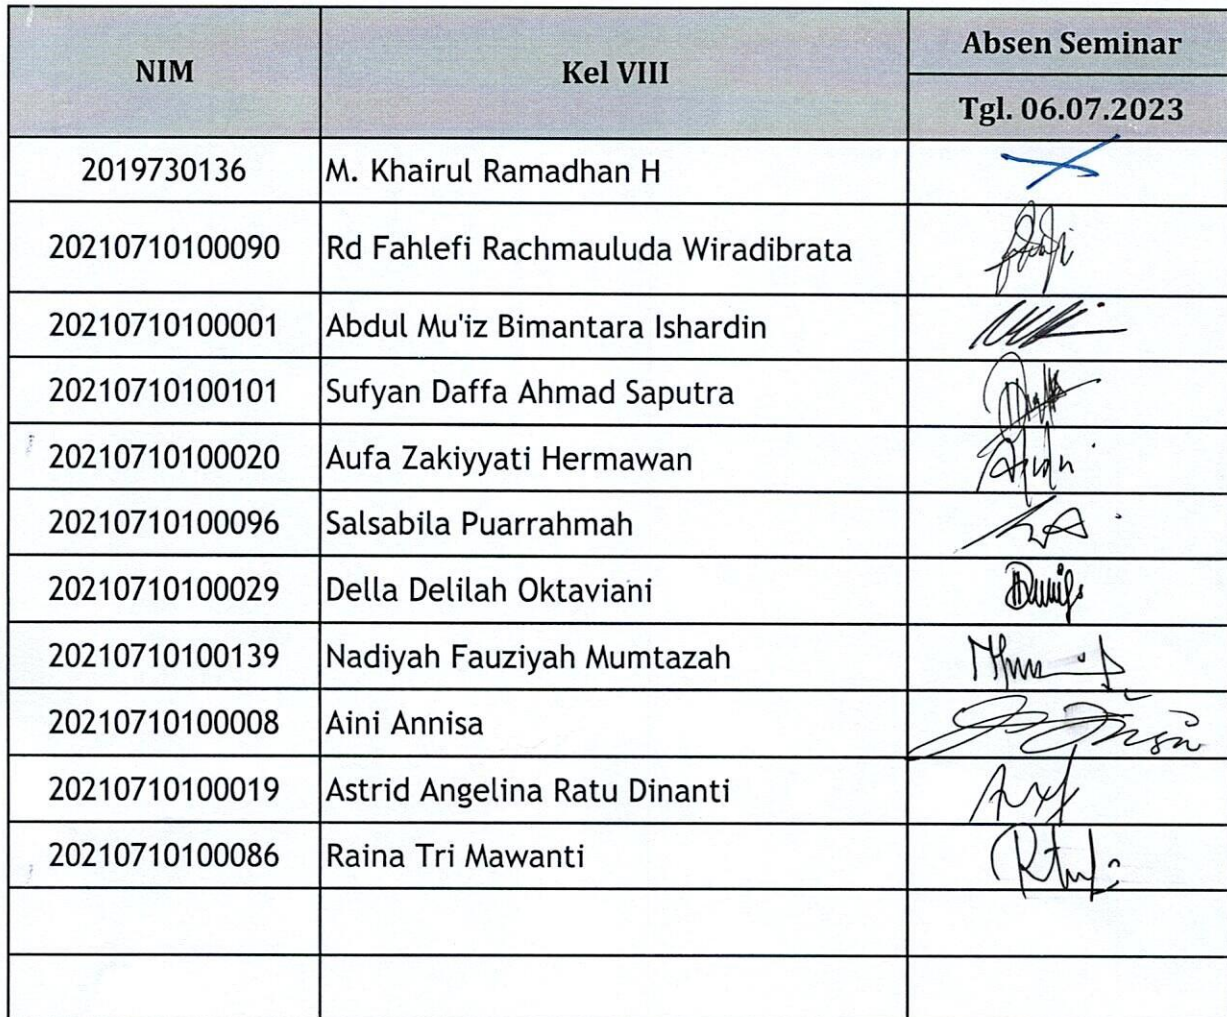 NIM Kel VIII Absen Seminar
Tgl. 06.07.2023
2019730136 M. Khairul Ramadhan H
20210710100090 Rd Fahlefi Rachmauluda Wiradibrata
20210710100001 Abdul Mu'iz Bimantara Ishardin
20210710100101 Sufyan Daffa Ahmad Saputra
20210710100020 Aufa Zakiyyati Hermawan
20210710100096 Salsabila Puarrahmah
20210710100029 Della Delilah Oktaviani
20210710100139 Nadiyah Fauziyah Mumtazah
20210710100008 Aini Annisa
20210710100019 Astrid Angelina Ratu Dinanti
20210710100086 Raina Tri Mawanti